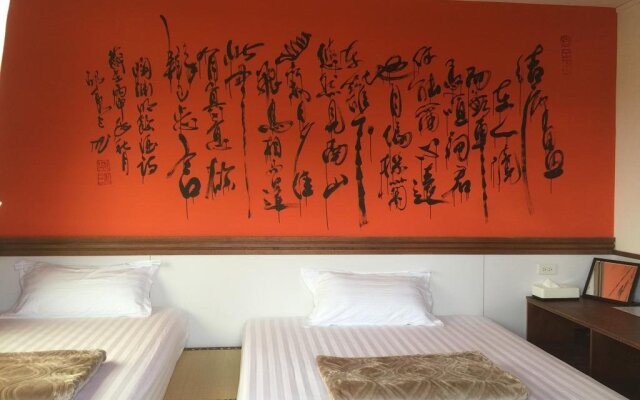 结庐
在人境
而無車
馬喧问君
何能爾心遠
地自偏採菊
東籬下
悠然見南山
山氣日夕佳
飛鳥相与還
此中
有真意欲
辨已忘言
陶渊明飲酒诗